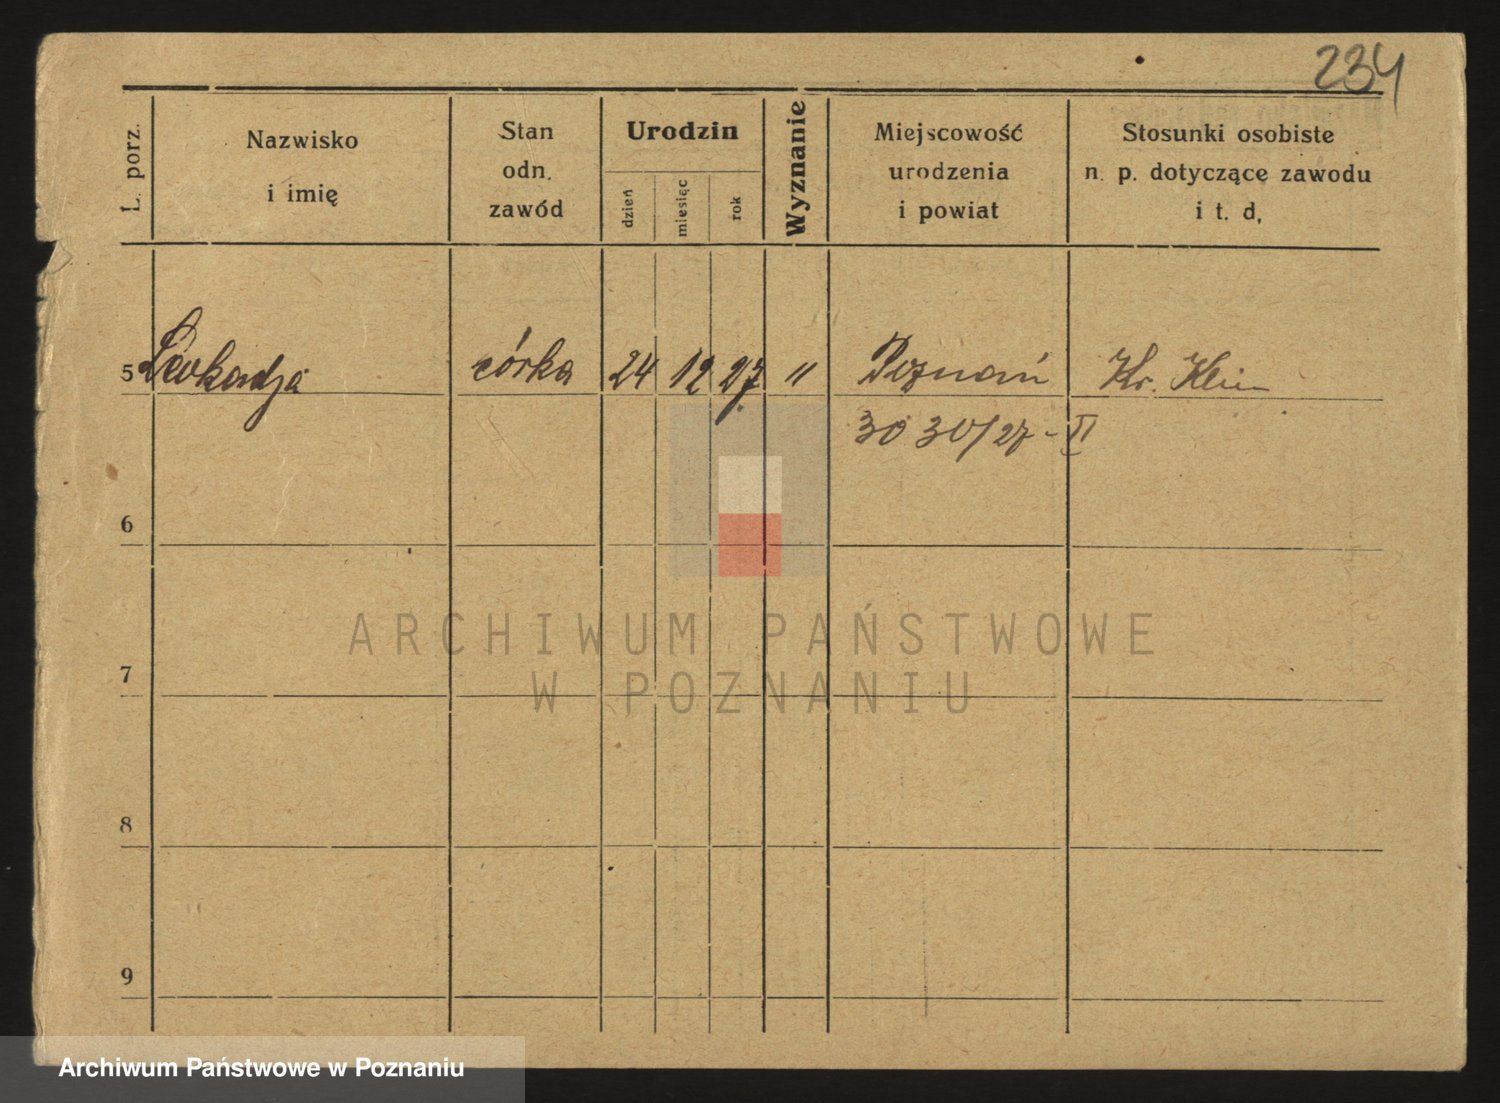 234
L. porz.
Nazwisko
i imię
Stan
odn.
zawód
Urodzin
dzień
miesiąc
rok
Wyznanie
Miejscowość
urodzenia
i powiat
Stosunki osobiste
n. p. dotyczące zawodu
i t. d,
5 Leokadja córka 24 12 27 " Poznań Kr. Klin
3030/27-II
6
7
8
9
ARCHIWUM PAŃSTWOWE
W POZNANIU
Archiwum Państwowe w Poznaniu